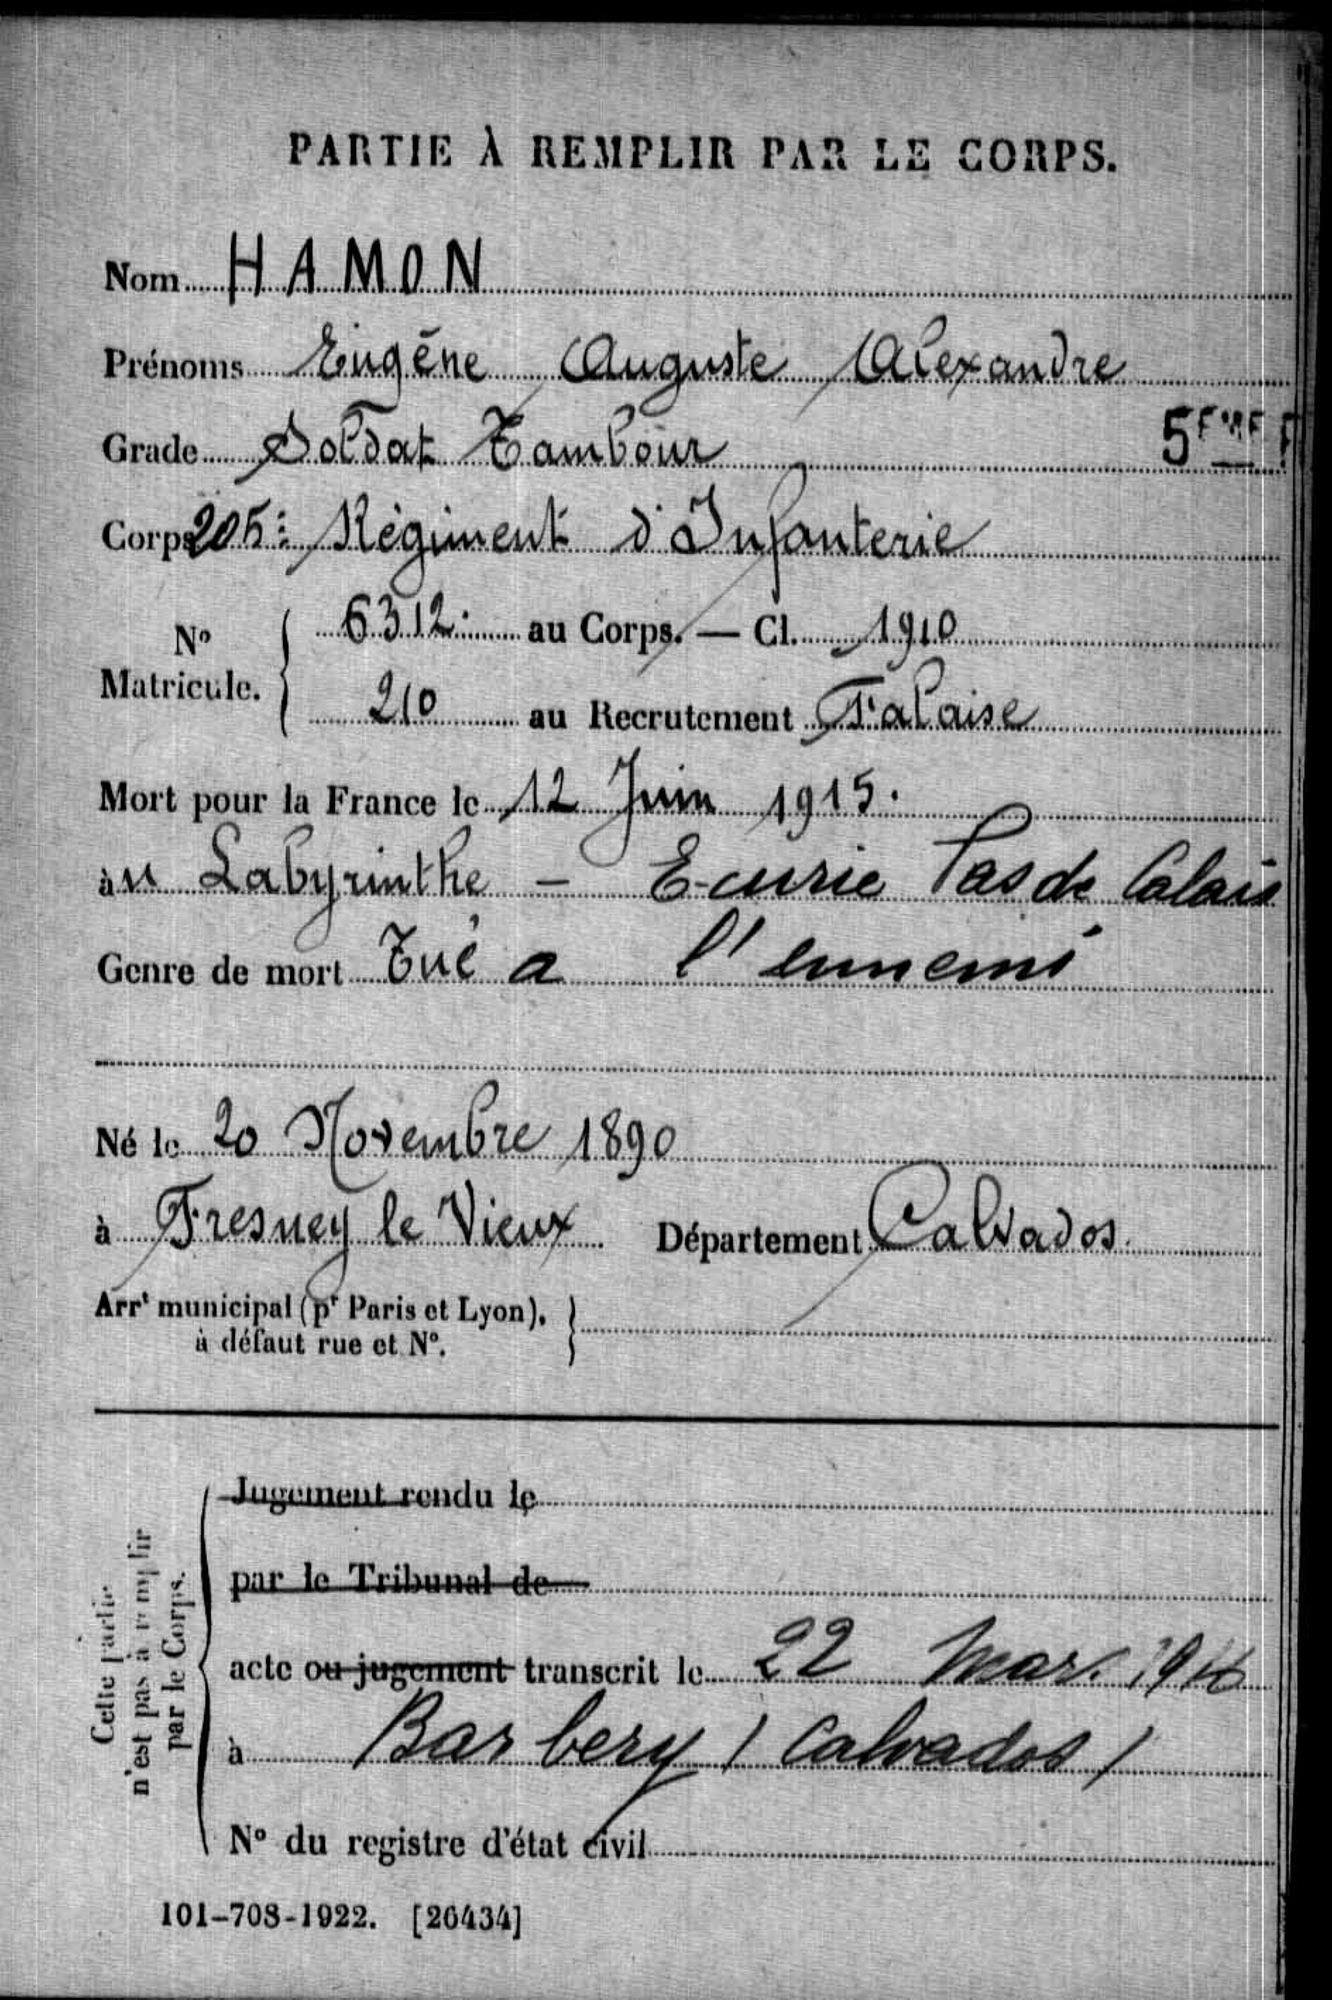 PARTIE À REMPLIR PAR LE CORPS.
Nom HAMON
Prénoms Eugène Auguste Alexandre
Grade Soldat Tambour 5EME
Corps 205e Régiment d'Infanterie
No Matricule. { 6312. au Corps. — Cl. 1910
210 au Recrutement Falaise
Mort pour la France le 12 Juin 1915.
au Labyrinthe - Ecurie Pas de Calais
Genre de mort Tué a l'ennemi
Né le 20 Novembre 1890
à Fresney le Vieux Département Calvados.
Arrt municipal (pr Paris et Lyon), }
à défaut rue et No.
Cette partie n'est pas à remplir par le Corps.
Jugement rendu le
par le Tribunal de
acte ou jugement transcrit le 22 Mars 1916
à Barbery (Calvados)
No du registre d'état civil
101-708-1922. [26434]